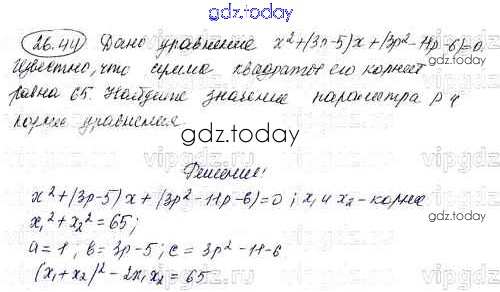 gdz.today
26.44 Дано уравнение x²+(3p-5)x+(3p²-11p-6)=0.
Известно, что сумма квадратов его корней
равна 65. Найдите значение параметра p и
корни уравнения
gdz.today
Решение:
x²+(3p-5)x+(3p²-11p-6)=0; x₁ и x₂ - корни
x₁²+x₂²=65;
a=1; b=3p-5; c=3p²-11-6
(x₁+x₂)²-2x₁x₂=65
gdz.today
gdz.today
gdz.today
vipgdz